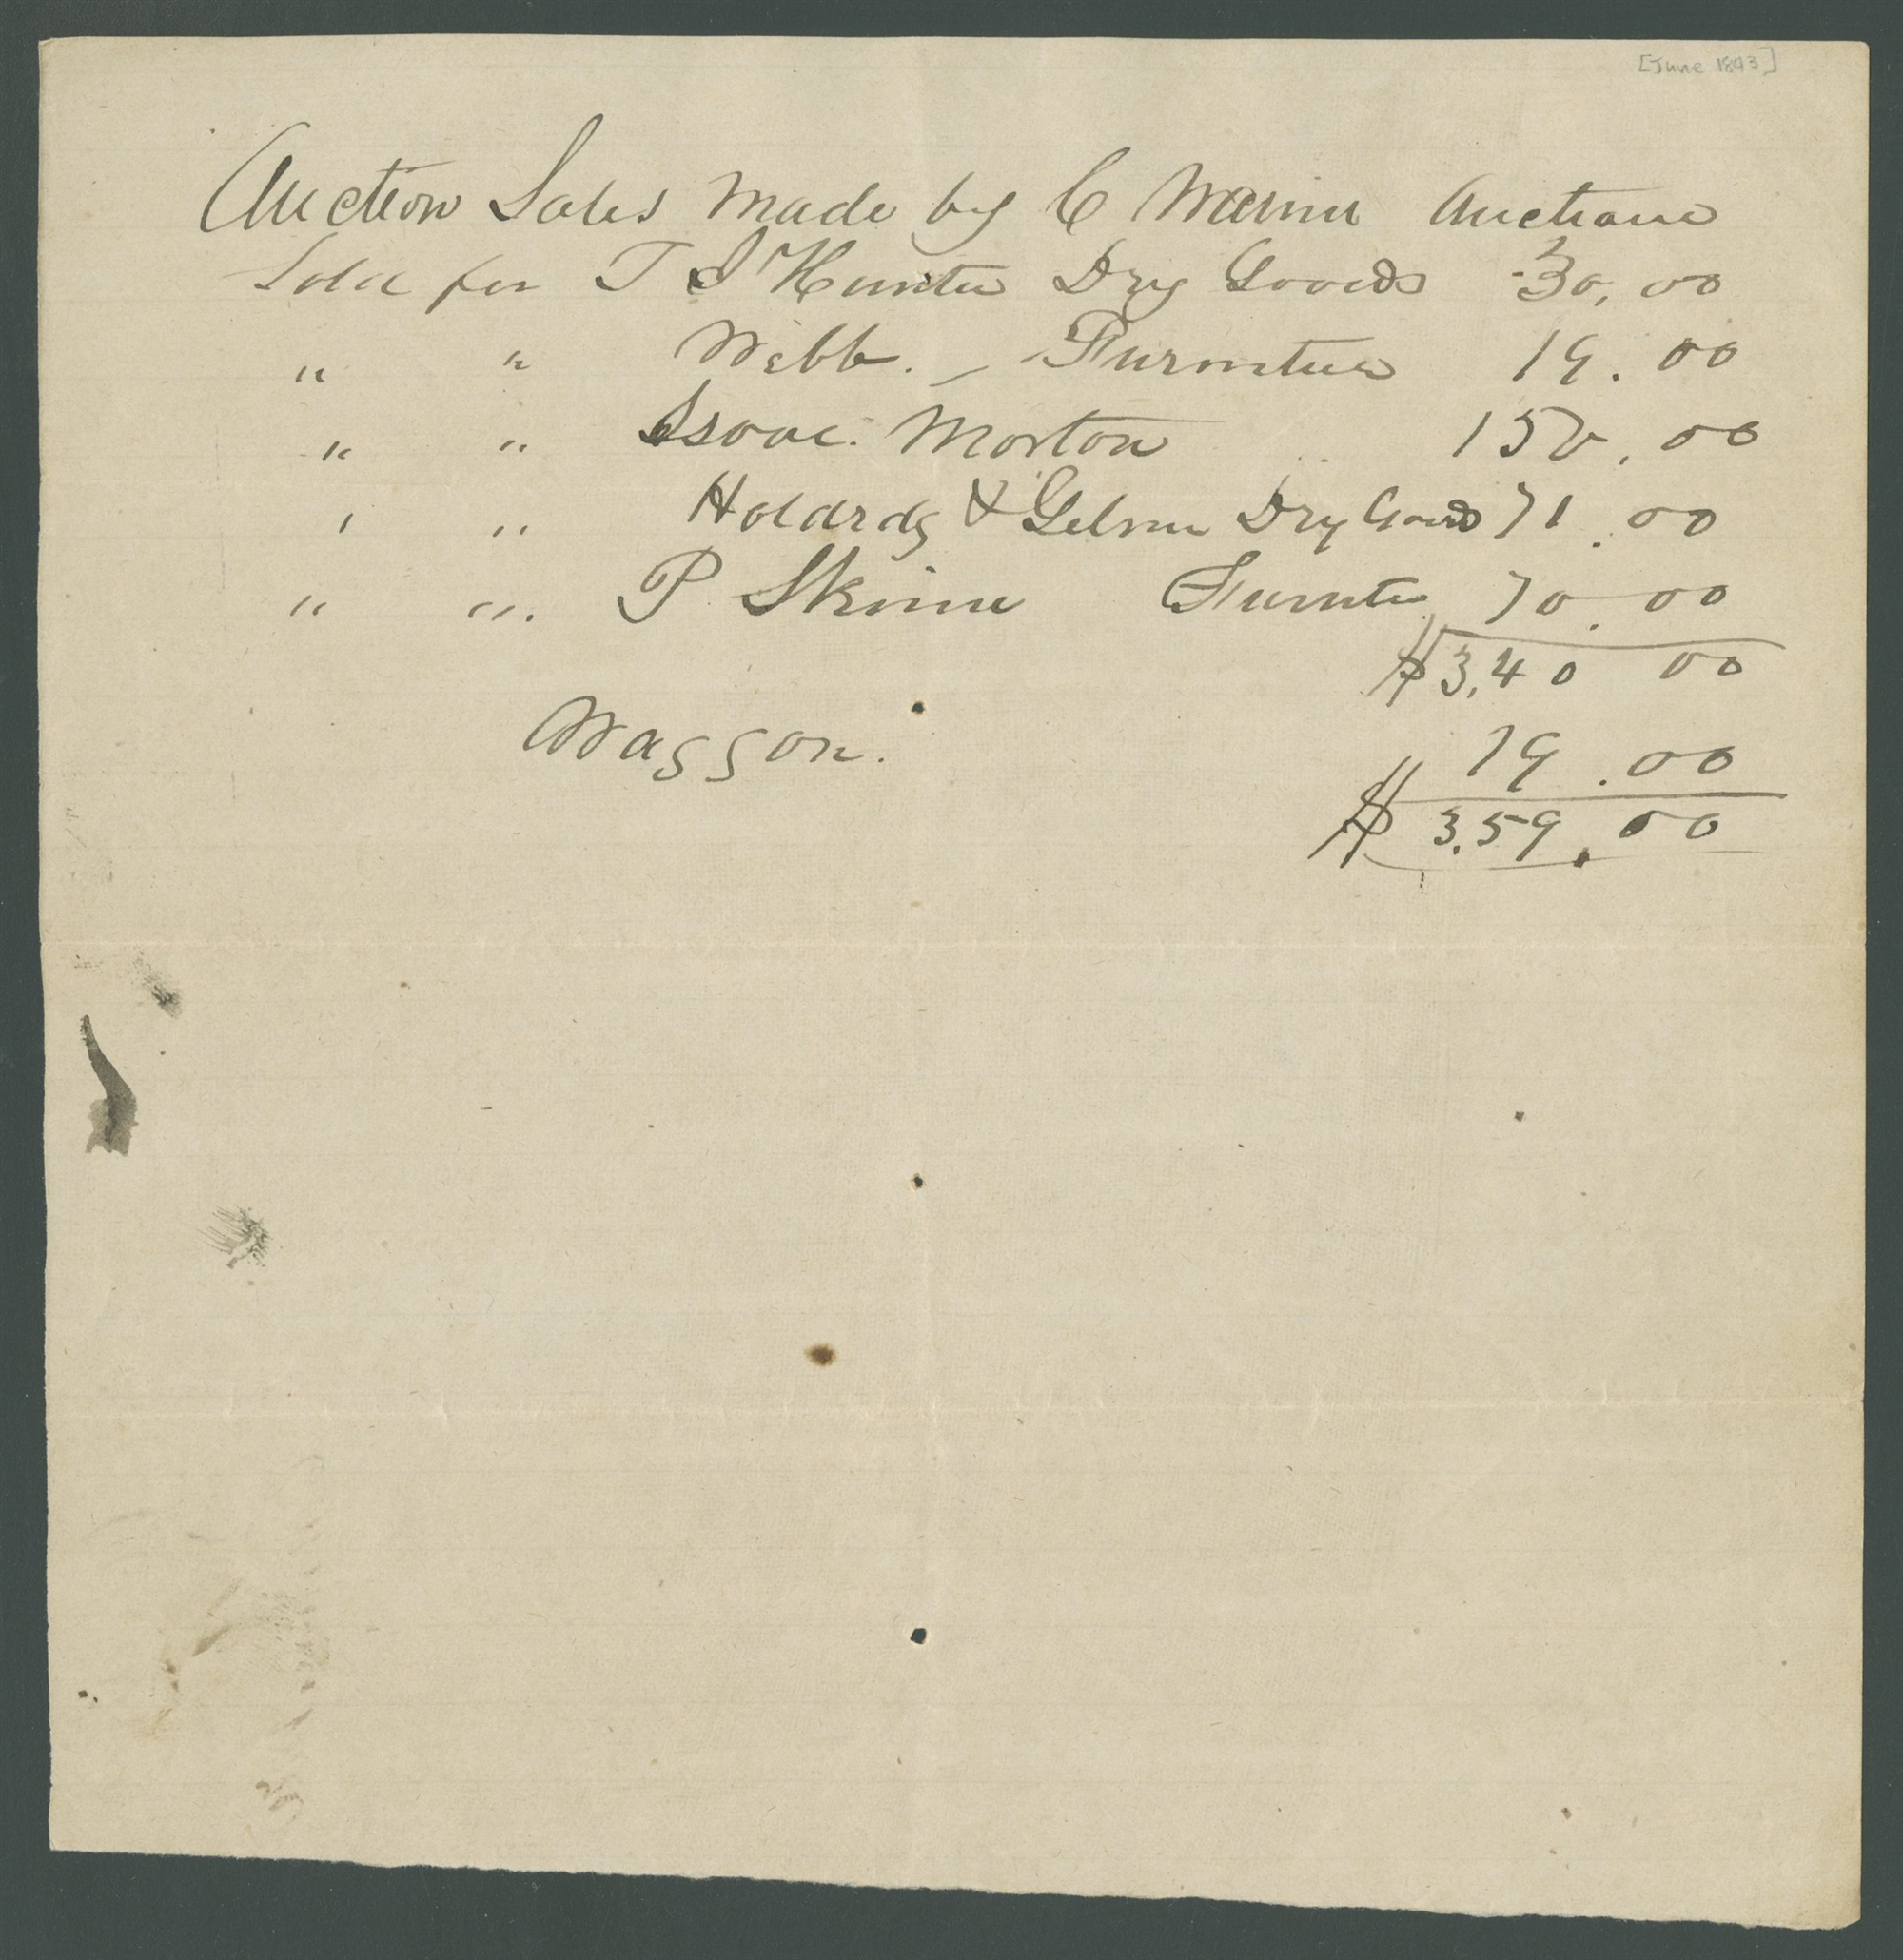 [June 1893]
Auction Sales Made by C Marine Auctione
Sold for T S Hunter Dry Goods 30.00
" " Webb. - Furniture 19.00
" " Isaac Morton 150.00
" " & Dry Goods 71.00
" " P Skinne Furnitu 70.00
$3,40 00
Waggon. 19.00
$ 3.59.00